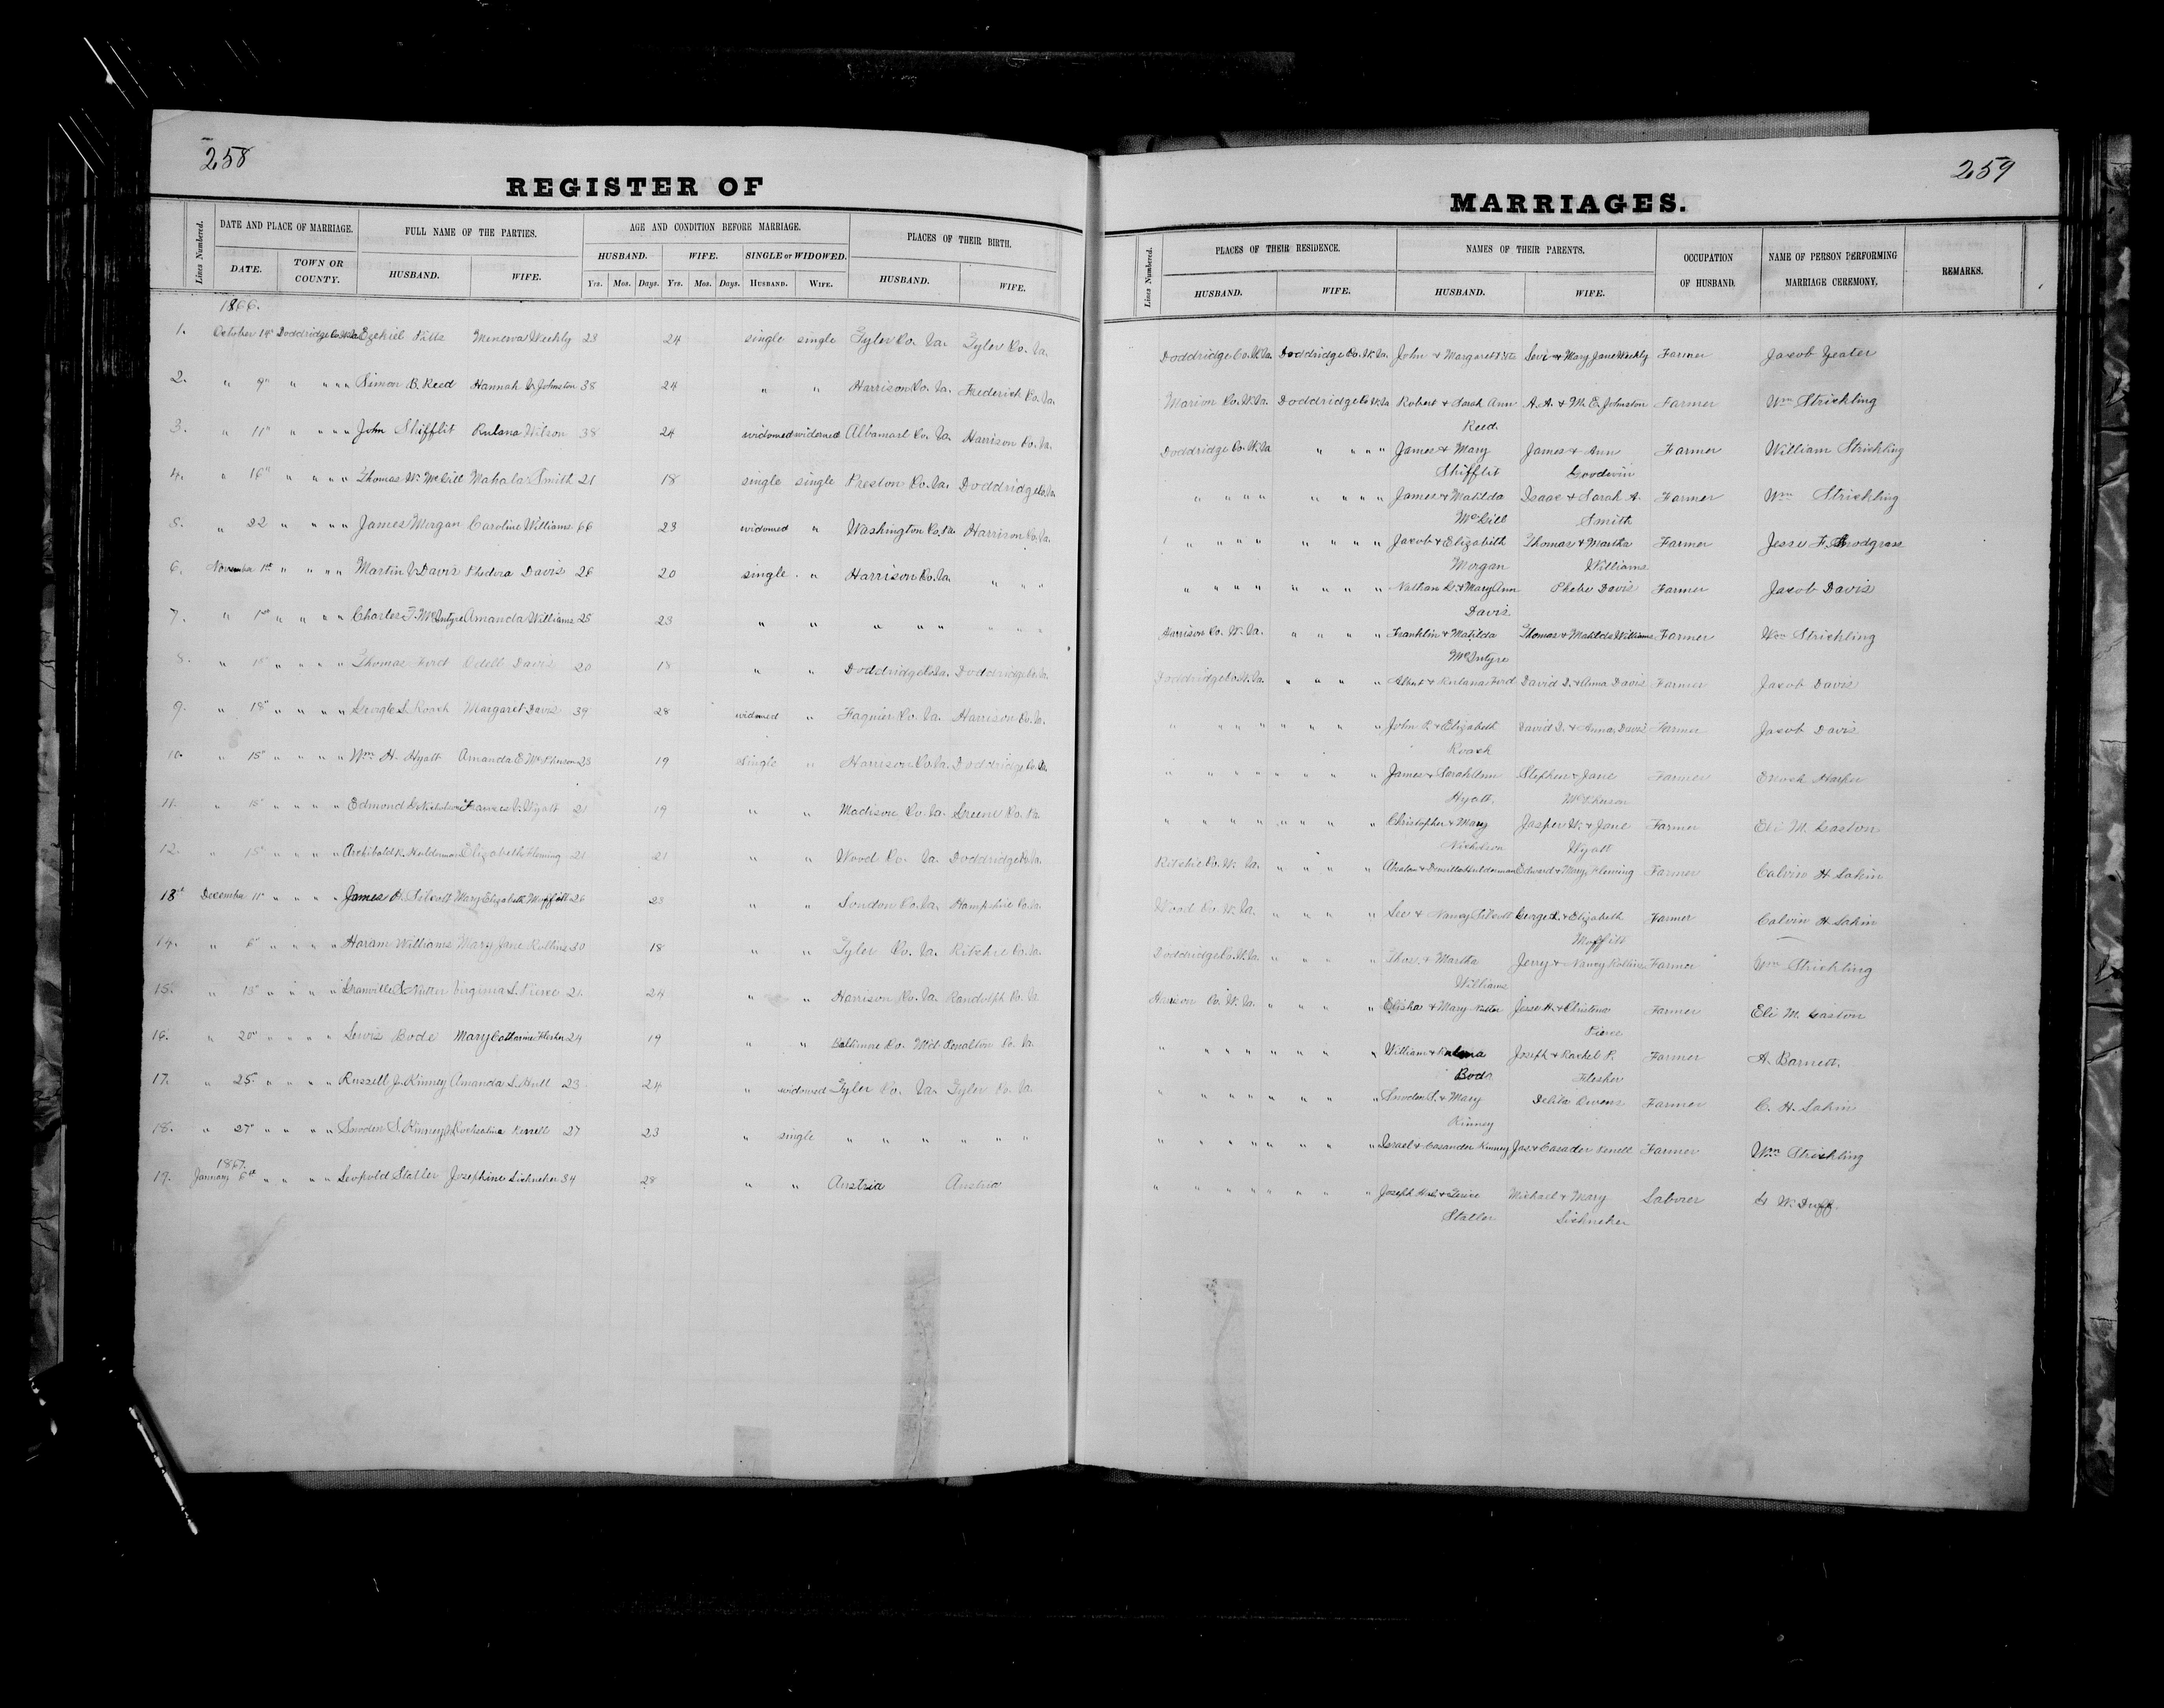 258
REGISTER OF
Lines Numbered. DATE AND PLACE OF MARRIAGE. FULL NAME OF THE PARTIES. AGE AND CONDITION BEFORE MARRIAGE. PLACES OF THEIR BIRTH.
DATE. TOWN OR COUNTY. HUSBAND. WIFE. HUSBAND. WIFE. SINGLE or WIDOWED. HUSBAND. WIFE.
Yrs. Mos. Days. Yrs. Mos. Days. HUSBAND. WIFE.
1866.
1. October 14" Doddridge Co. W. Va. Ezekiel Pitts Minerva Weekly 23 24 single single Tyler Co. Va. Tyler Co. Va.
2. " 9" " " " " Simon B. Reed Hannah V. Johnston 38 24 " " Harrison Co. Va. Frederick Co. Va.
3. " 11" " " " " John Shifflit Rulana Wilson 38 24 widowed widowed Albamarl Co. Va. Harrison Co. Va.
4. " 16" " " " " Thomas W. McGill Mahala Smith 21 18 single single Preston Co. Va. Doddridge Co. Va.
5. " 22 " " " " James Morgan Caroline Williams 66 23 widowed " Washington Co. Pa. Harrison Co. Va.
6. November 1st " " " " Martin V. Davis Phedora Davis 26 20 single " Harrison Co. Va. " " "
7. " 1st " " " " Charles F. McIntyre Amanda Williams 25 23 " " " " " " " "
8. " 15" " " " " Thomas Ford Odell Davis 20 18 " " Doddridge Co. Va. Doddridge Co. Va.
9. " 18" " " " " George L. Roach Margaret Davis 39 28 widowed " Faquier Co. Va. Harrison Co. Va.
10. " 15" " " " " Wm. H. Hyatt Amanda E. McPherson 23 19 Single " Harrison Co. Va. Doddridge Co. Va.
11. " 15" " " " " Edmond L. Nicholson Frances V. Wyatt 21 19 " " Madison Co. Va. Greene Co. Va.
12. " 15" " " " " Archibald R. Hulderman Elizabeth Fleming 21 21 " " Wood Co. Va. Doddridge Co. Va.
13. December 11" " " " " James H. Silcott Mary Elizabeth Moffitt 26 23 " " Loudon Co. Va. Hampshire Co. Va.
14. " 6" " " " " Haram Williams Mary Jane Rollins 30 18 " " Tyler Co. Va. Ritchie Co. Va.
15. " 13" " " " " Granville A. Nutter Virginia S. Pierce 21 24 " " Harrison Co. Va. Randolph Co. Va.
16. " 20" " " " " Lewis Bode Mary Catharine Flesher 24 19 " " Baltimore Co. Md. Co. Va.
17. " 25 " " " " Russell J. Kinney Amanda S. Hull 23 24 " widowed Tyler Co. Va. Tyler Co. Va.
18. " 27" " " " " Snoden S. Kinney Jr. Kerrell 27 23 " single " " " " " " "
1867.
19. January 6th " " " " Leopold Statler Josephine 34 28 " " Austria Austria
259
MARRIAGES.
Lines Numbered. PLACES OF THEIR RESIDENCE. NAMES OF THEIR PARENTS. OCCUPATION OF HUSBAND. NAME OF PERSON PERFORMING MARRIAGE CEREMONY. REMARKS.
HUSBAND. WIFE. HUSBAND. WIFE.
Doddridge Co. W. Va. Doddridge Co. W. Va. John & Margaret Pitts Levi & Mary Jane Weekly Farmer Jacob Yeater
Marion Co. W. Va. Doddridge Co. W. Va. Robert & Sarah Ann A. A. & M. E. Johnston Farmer Wm Strickling
Reed
Doddridge Co. W. Va. " " " " James & Mary James & Ann Farmer William Strickling
Shifflit Goodwin
" " " " " " " " James & Matilda Isaac & Sarah A. Farmer Wm Strickling
McGill Smith
" " " " " " " " Jacob & Elizabeth Thomas & Martha Farmer Jesse F. Snodgrass
Morgan Williams
" " " " " " " " Nathan D. & Mary Ann Phebe Davis Farmer Jacob Davis
Davis
Harrison Co. W. Va. " " " " Franklin & Matilda Thomas & Matilda Williams Farmer Wm Strickling
McIntyre
Doddridge Co. W. Va. " " " " Albert & Rulana Ford David D. & Anna Davis Farmer Jacob Davis
" " " " " " " " John P. & Elizabeth David D. & Anna Davis Farmer Jacob Davis
Roach
" " " " " " " " James & Sarah Ann Stephen & Jane Farmer Enoch Harper
Hyatt McPherson
" " " " " " " " Christopher & Mary Jasper W. & Jane Farmer Eli M. Gaston
Nicholson Wyatt
Ritchie Co. W. Va. " " " " Absalom & Drusilla Hulderman Edward & Mary Fleming Farmer Calvin H. Lakin
Wood Co. W. Va. " " " " Lee & Nancy Silcott George L. & Elizabeth Farmer Calvin H. Lakin
Moffitt
Doddridge Co. W. Va. " " " " Thos. & Martha Jerry & Nancy Rollins Farmer Wm Strickling
Williams
Harrison Co. W. Va. " " " " Elisha & Mary Nutter Jesse H. & Christena Farmer Eli M. Gaston
Pierce
" " " " " " " " William & Joseph & Rachel P. Farmer A. Barnett.
Bode Flesher
" " " " " " " " Snoden S. & Mary Delila Owens Farmer C. H. Lakin
Kinney
" " " " " " " " Israel & Casander Kinney Jas. & Casader Kerrell Farmer Wm Strickling
" " " " " " " " Joseph & Michael & Mary Laborer G W. Duff.
Statler